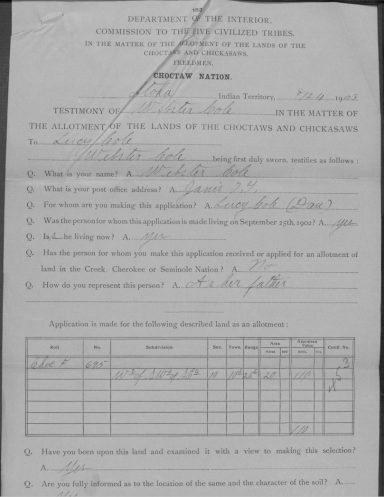 DEPARTMENT OF THE INTERIOR.
COMMISSION TO THE FIVE CIVILIZED TRIBES.
IN THE MATTER OF THE ALLOTMENT OF THE LANDS OF THE
CHOCTAWS AND CHICKASAWS.
FREEDMEN.
CHOCTAW NATION.
Atoka Indian Territory, 1903
TESTIMONY OF Webster Cole IN THE MATTER OF
THE ALLOTMENT OF THE LANDS OF THE CHOCTAWS AND CHICKASAWS
To Lucy Cole
Webster Cole being first duly sworn, testifies as follows:
Q. What is your name? A. Webster Cole
Q. What is your post office address? A. Janis I.T.
Q. For whom are you making this application? A. Lucy Cole (Dau)
Q. Was the person for whom this application is made living on September 25th, 1902? A. yes
Q. Is he living now? A. yes
Q. Has the person for whom you make this application received or applied for an allotment of
land in the Creek, Cherokee or Seminole Nation? A. No
Q. How do you represent this person? A. As her father
Application is made for the following described land as an allotment:
Roll No. Subdivision Sec. Town. Range Area Appraised Value Certf. No.
Acres Acres
Choc F. 695
20 110
110
Q. Have you been upon this land and examined it with a view to making this selection?
A. Yes
Q. Are you fully informed as to the location of the same and the character of the soil? A.
Yes